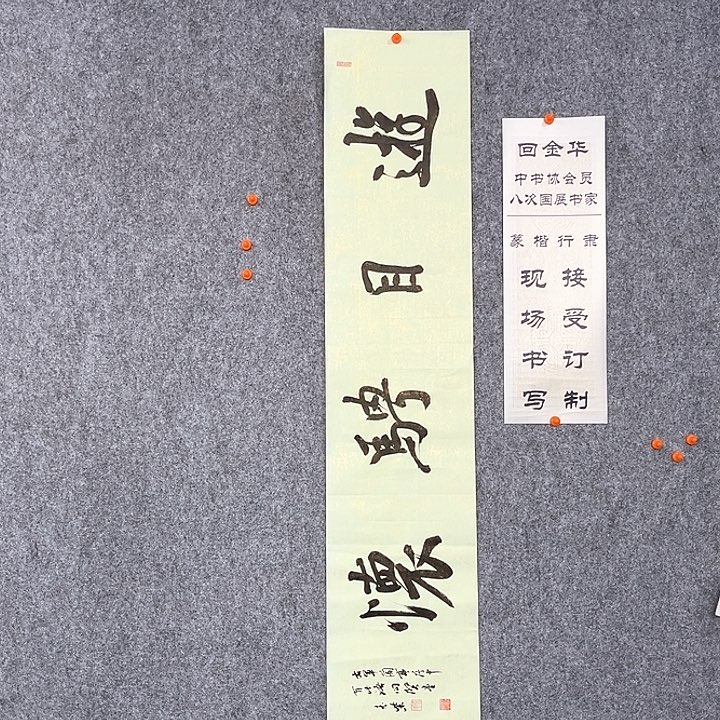 遊目騁懷
回金华
中书协会员
八次国展书家
篆楷行隶
现场书写
接受订制